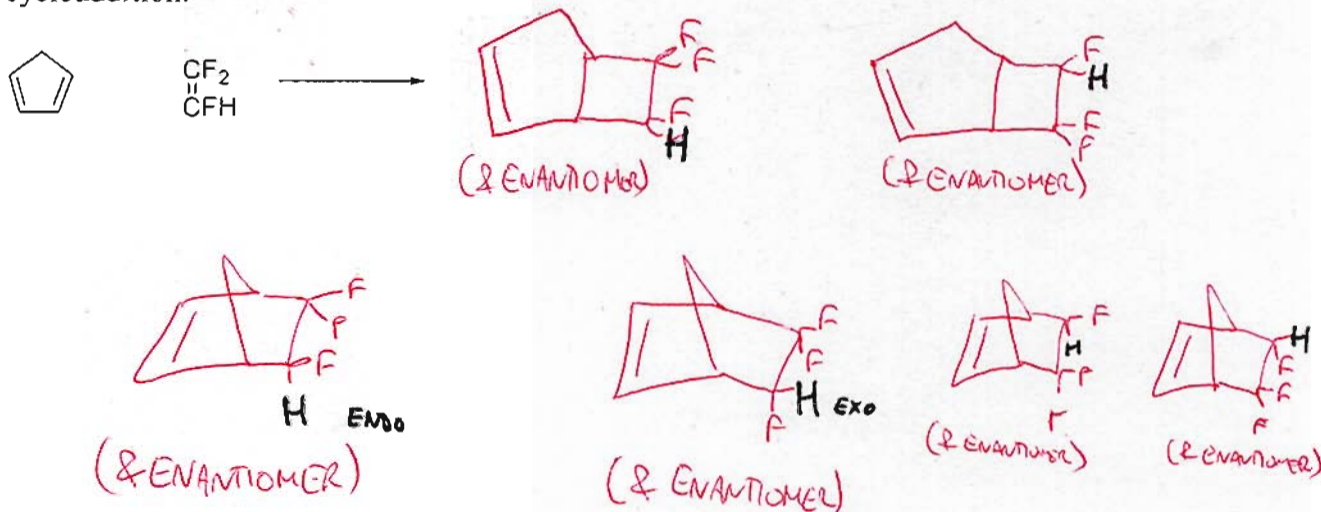 cycloaddition.
CF2
CFH
F
F
F
H
(& ENANTIOMER)
F
H
F
F
(& ENANTIOMER)
F
F
F
H ENDO
(& ENANTIOMER)
F
F
H EXO
F
(& ENANTIOMER)
F
H
F
F
(& ENANTIOMER)
H
F
F
F
(& ENANTIOMER)